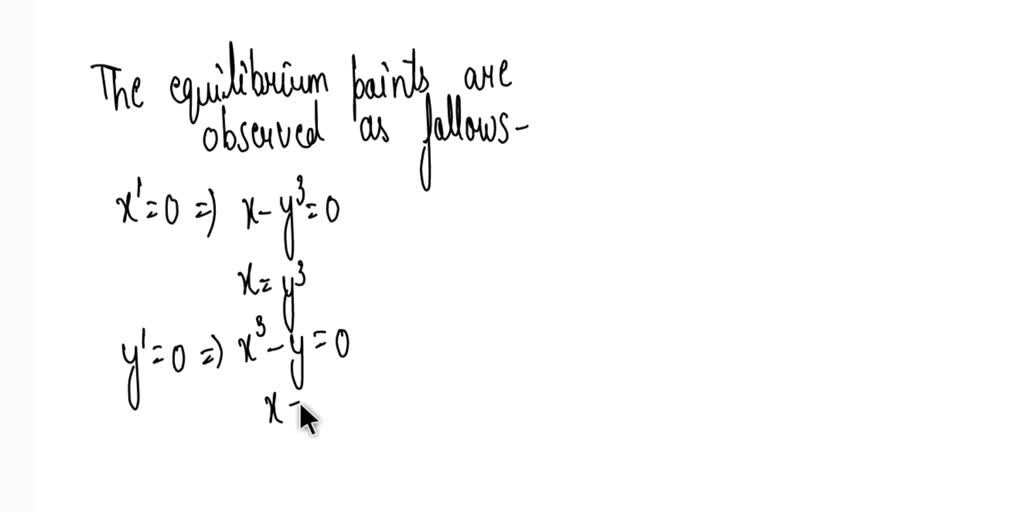 The equilibrium points are
observed as follows-
x'=0 => x-y³=0
x=y³
y'=0 => x³-y=0
x -